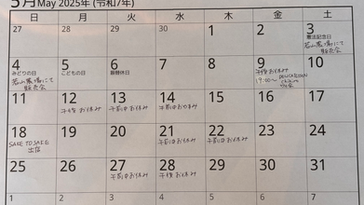 5月 May 2025年 (令和7年)
日 月 火 水 木 金 土
27 28 29 30 1 2 3
憲法記念日
4 5 6 7 8 9 10
みどりの日 こどもの日 振替休日
販売会
午後お休み
17:00~
11 12 13 14 15 16 17
午後お休み 午前お休み 午前お休み
18 19 20 21 22 23 24
SAKE TO SAKE 午前お休み 午後お休み
出店
25 26 27 28 29 30 31
午前お休み 午後お休み
1 2 3 4 5 6 7